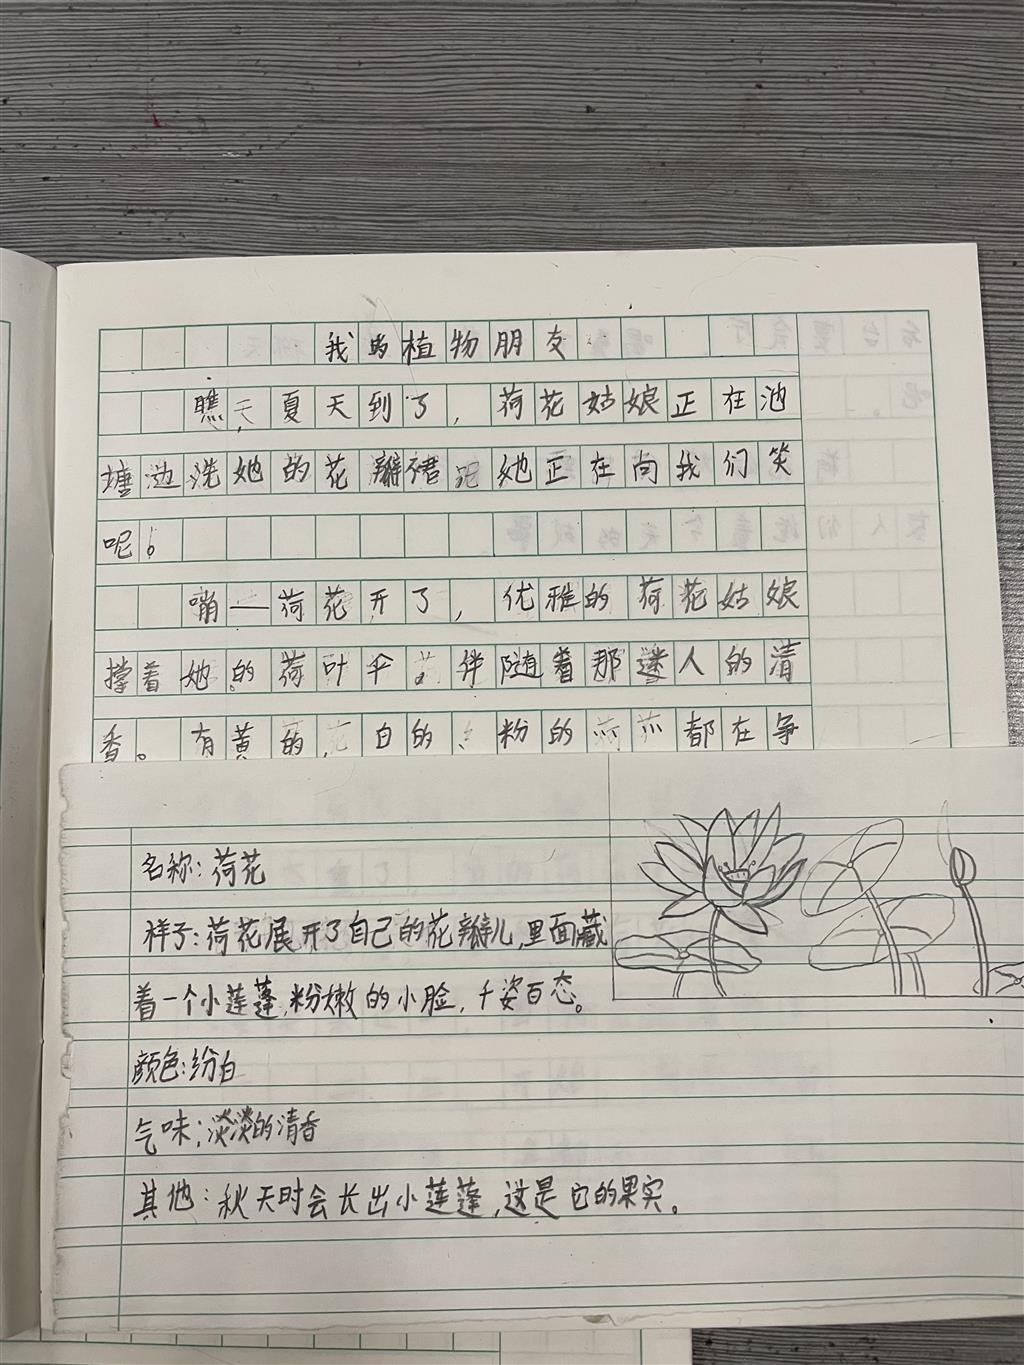 我的植物朋友
瞧,夏天到了,荷花姑娘正在池
塘边洗她的花瓣裙 她正在向我们笑
呢。
嘣——荷花开了,优雅的荷花姑娘
撑着她的荷叶伞。伴随着那迷人的清
香。有黄的,白的 粉的 都在争
名称:荷花
样子:荷花展开了自己的花瓣儿,里面藏
着一个小莲蓬,粉嫩的小脸,千姿百态。
颜色:纷白
气味:淡淡的清香
其他:秋天时会长出小莲蓬,这是它的果实。